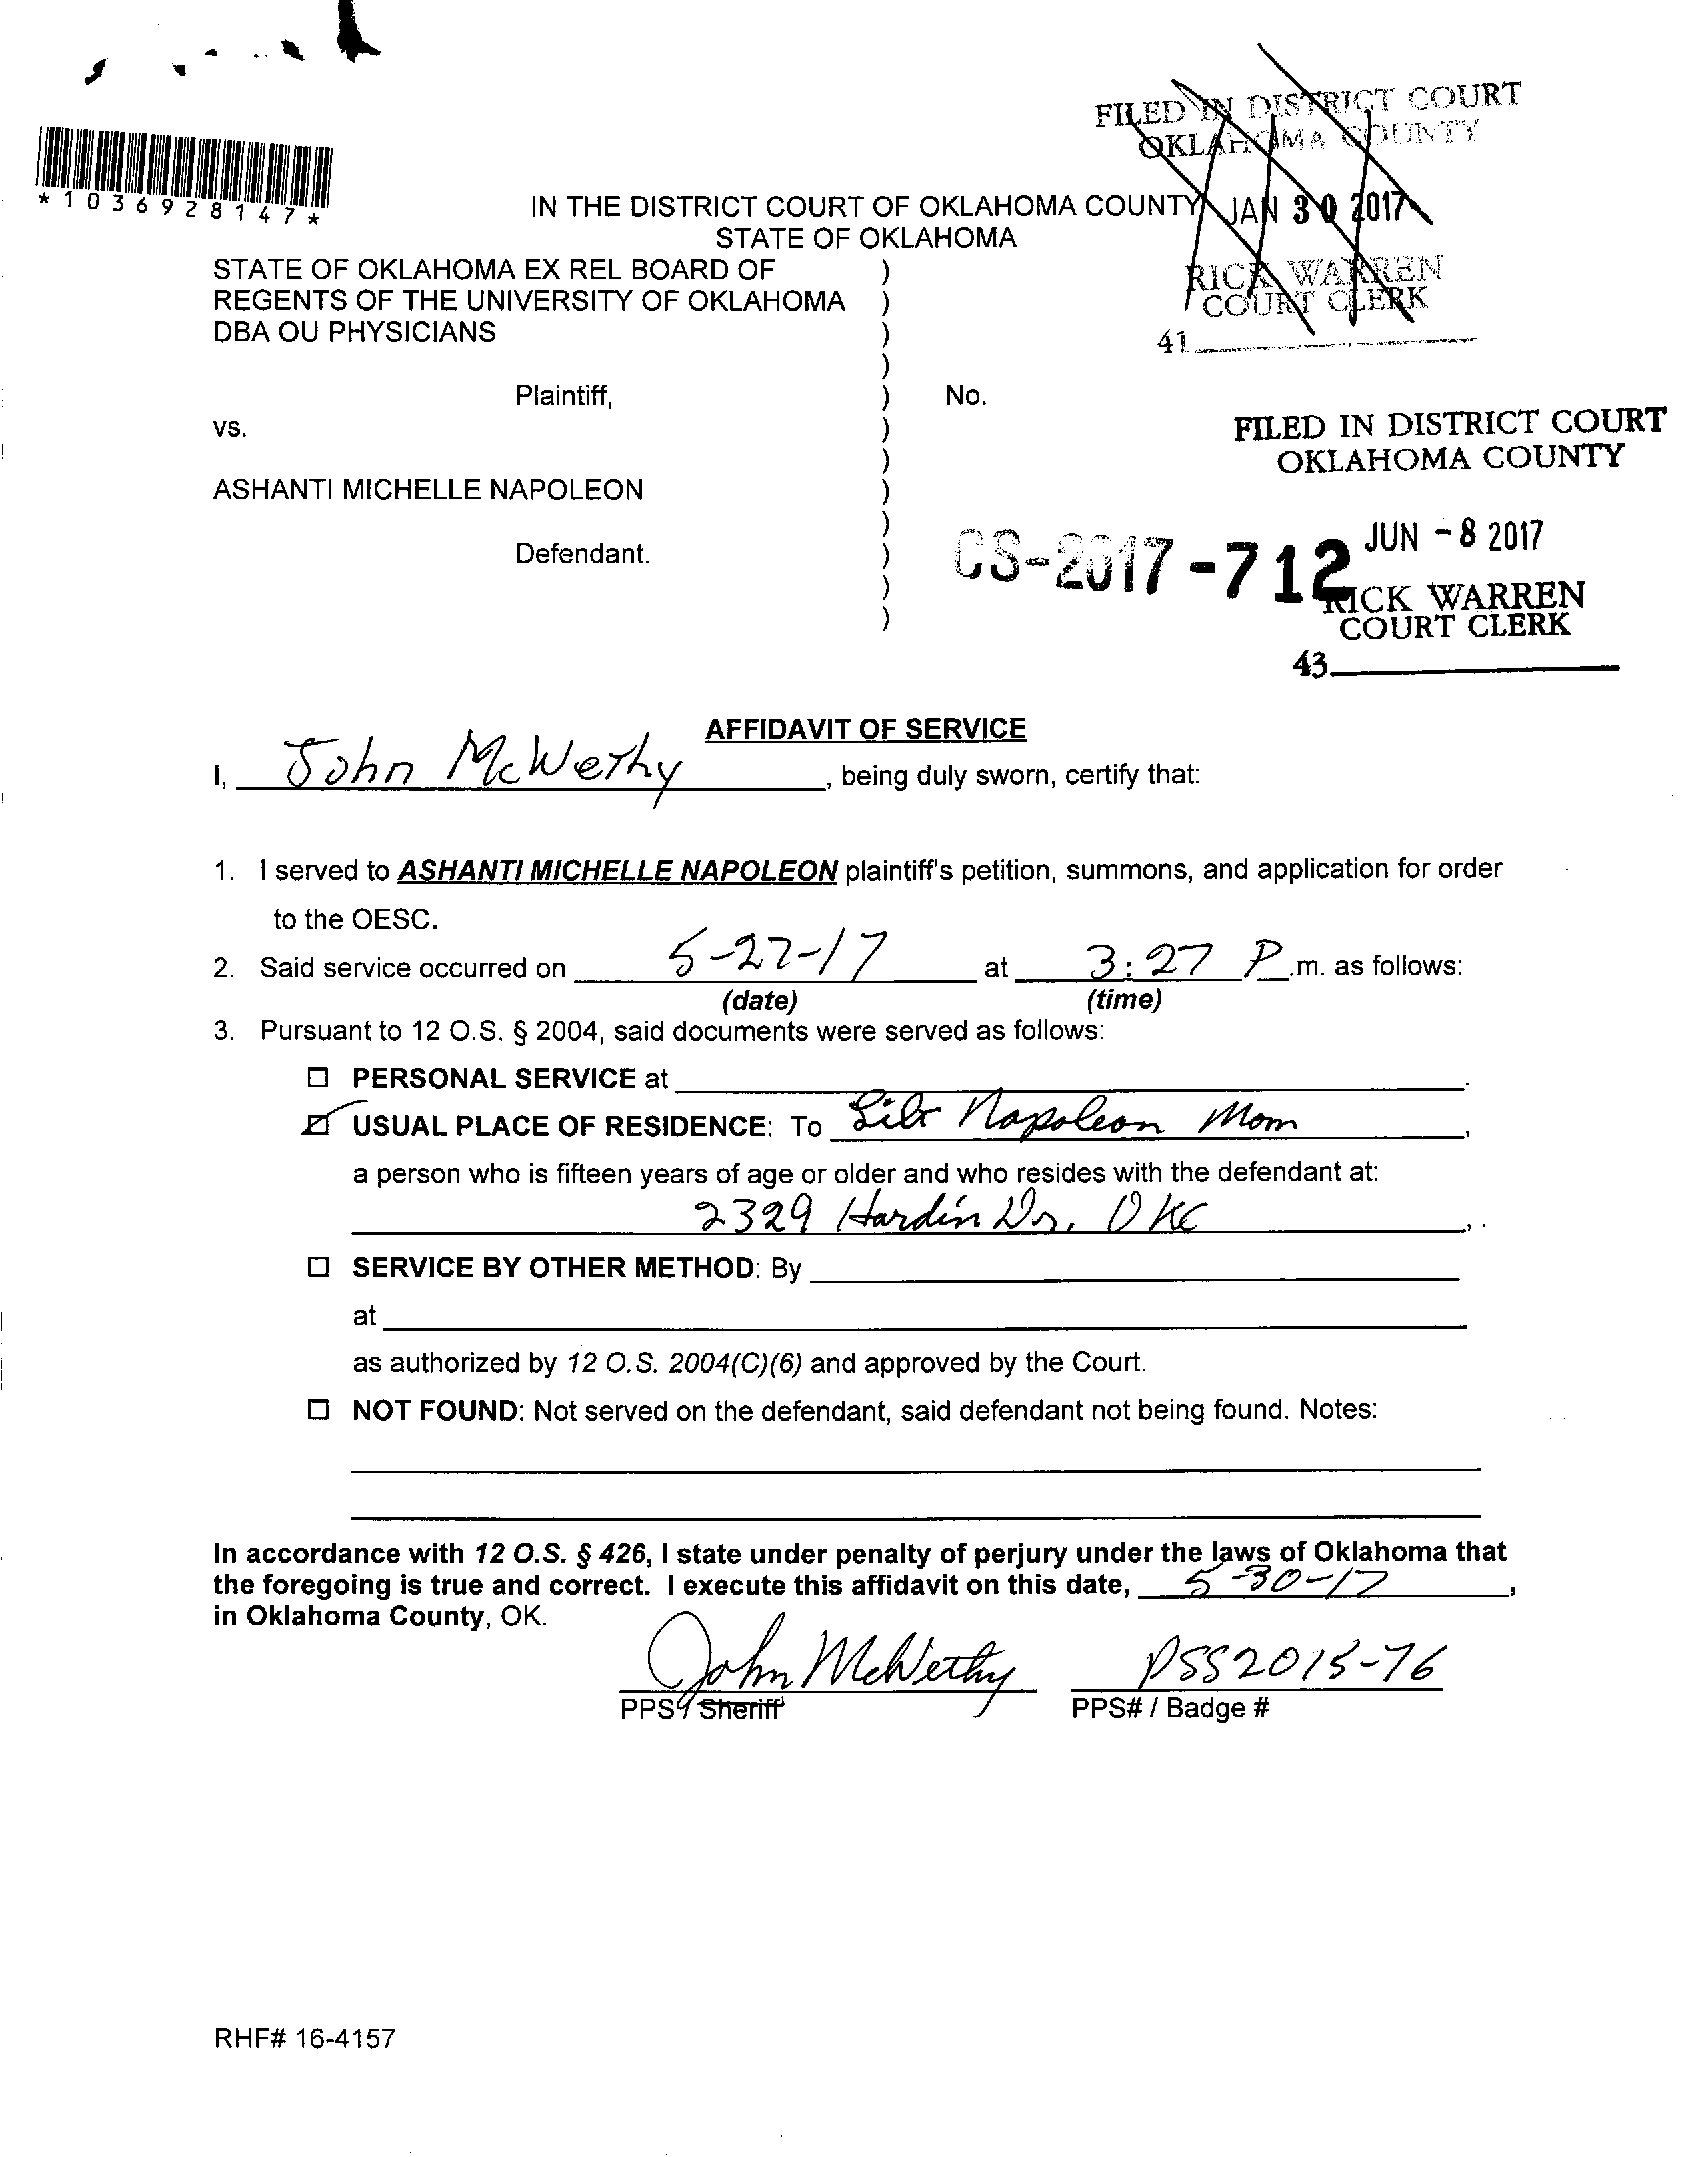 *1036928147*
FILED IN DISTRICT COURT
OKLAHOMA COUNTY
JAN 30 2017
RICK WARREN
COURT CLERK
41
IN THE DISTRICT COURT OF OKLAHOMA COUNTY
STATE OF OKLAHOMA
STATE OF OKLAHOMA EX REL BOARD OF )
REGENTS OF THE UNIVERSITY OF OKLAHOMA )
DBA OU PHYSICIANS )
)
Plaintiff, ) No.
vs. )
)
ASHANTI MICHELLE NAPOLEON )
)
Defendant. )
)
)
FILED IN DISTRICT COURT
OKLAHOMA COUNTY
CS-2017-712
JUN -8 2017
RICK WARREN
COURT CLERK
43
AFFIDAVIT OF SERVICE
I, John McWethy, being duly sworn, certify that:
1. I served to ASHANTI MICHELLE NAPOLEON plaintiff's petition, summons, and application for order
to the OESC.
2. Said service occurred on 5-27-17 at 3:27 P.m. as follows:
(date) (time)
3. Pursuant to 12 O.S. § 2004, said documents were served as follows:
☐ PERSONAL SERVICE at .
☑ USUAL PLACE OF RESIDENCE: To Napoleon Mom,
a person who is fifteen years of age or older and who resides with the defendant at:
2329 Hardin Dr. OKC,
☐ SERVICE BY OTHER METHOD: By
at
as authorized by 12 O.S. 2004(C)(6) and approved by the Court.
☐ NOT FOUND: Not served on the defendant, said defendant not being found. Notes:
In accordance with 12 O.S. § 426, I state under penalty of perjury under the laws of Oklahoma that
the foregoing is true and correct. I execute this affidavit on this date, 5-30-17,
in Oklahoma County, OK.
John McWethy PSS2015-76
PPS / Sheriff PPS# / Badge #
RHF# 16-4157